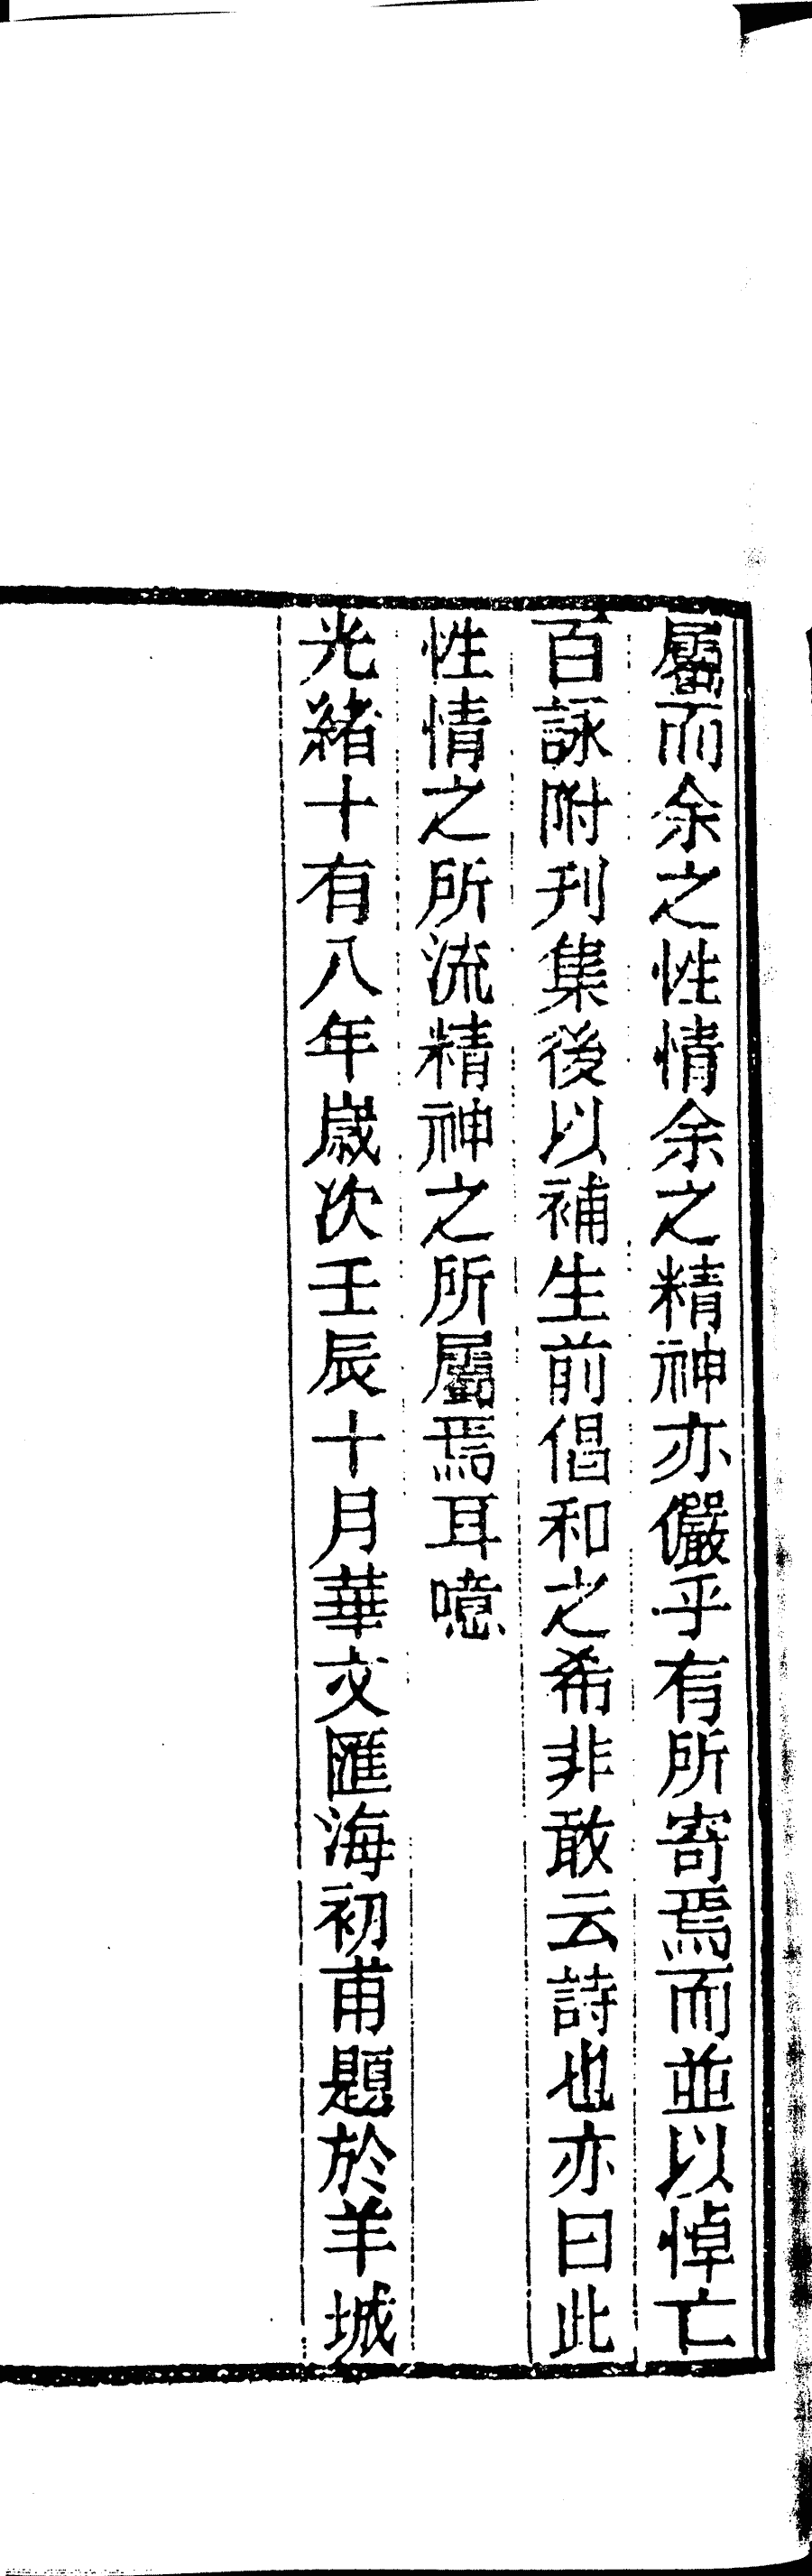 屬而余之性情余之精神亦儼乎有所寄焉而並以悼亡
百詠附刊集後以補生前倡和之希非敢云詩也亦曰此
性情之所流精神之所屬焉耳噫
光緒十有八年歲次壬辰十月華文匯海初甫題於羊城